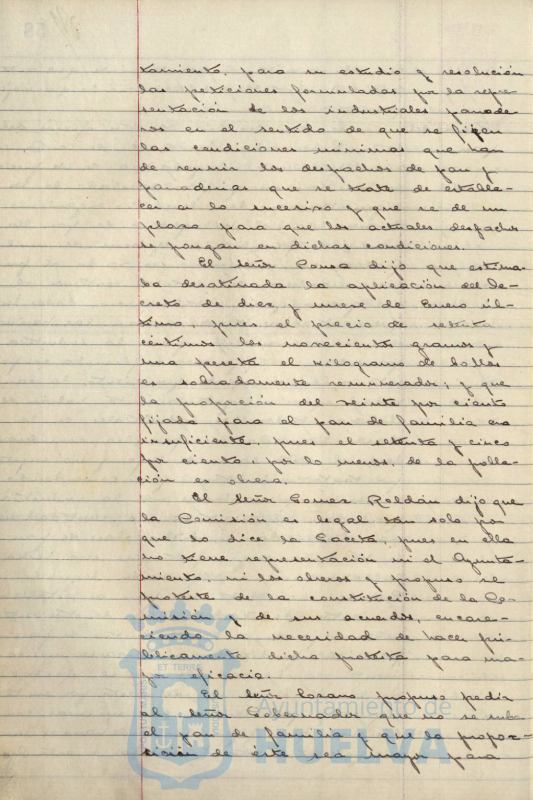 tamiento, para su estudio y resolución
las peticiones formuladas por la repre-
sentación de los industriales panade
ros en el sentido de que se fijen
las condiciones mínimas que han
de reunir los despachos de pan y
panaderias que se trate de estable-
cer en lo sucesivo y que se de un
plazo para que los actuales despachos
se pongan en dichas condiciones.
El Señor Ponsa dijo que estima-
ba desatinada la aplicación del De-
creto de diez y nueve de Enero úl-
timo, pues el precio de setenta
céntimos los novecientos gramos y
una peseta el kilogramo de bollos
es sobradamente remunerador; y que
la proporción del veinte por ciento
fijada para el pan de familia era
insuficiente, pues el setenta y cinco
por ciento, por lo menos, de la pobla-
ción es obrera.
El Señor Gomez Roldán dijo que
la Comisión es legal tan solo por
que lo dice la Gaceta, pues en ella
no tiene representación ni el Ayunta-
miento, ni los obreros y propuso se
proteste de la constitución de la Co-
misión y de sus acuerdos, encare-
ciendo la necesidad de hacer pú-
blicamente dicha protesta para ma-
yor eficacia.
El Señor Lozano propuso pedir
al Señor Gobernador que no se suba
el pan de familia y que la propor-
sición de éste sea mayor para
ET TERRÆ
Ayuntamiento de
HUELVA